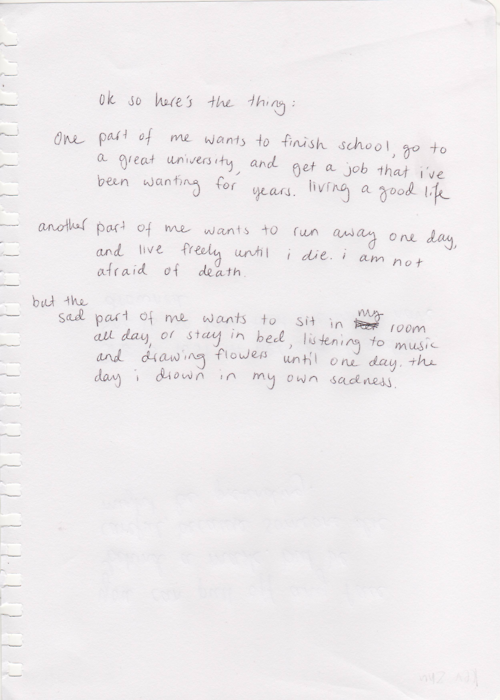 ok so here's the thing:
One part of me wants to finish school, go to
a great university, and get a job that i've
been wanting for years. living a good life
another part of me wants to run away one day,
and live freely until i die. i am not
afraid of death.
but the
sad part of me wants to sit in my room
all day, or stay in bed, listening to music
and drawing flowers until one day. the
day i drown in my own sadness.